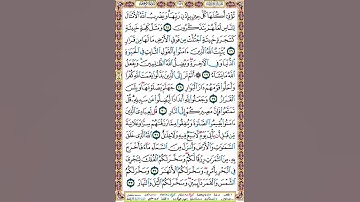 تُؤْتِي أُكُلَهَا كُلَّ حِينٍ بِإِذْنِ رَبِّهَا وَيَضْرِبُ اللَّهُ الْأَمْثَالَ
لِلنَّاسِ لَعَلَّهُمْ يَتَذَكَّرُونَ ٢٥ وَمَثَلُ كَلِمَةٍ خَبِيثَةٍ
كَشَجَرَةٍ خَبِيثَةٍ اجْتُثَّتْ مِن فَوْقِ الْأَرْضِ مَا لَهَا مِن قَرَارٍ
٢٦ يُثَبِّتُ اللَّهُ الَّذِينَ ءَامَنُوا بِالْقَوْلِ الثَّابِتِ فِي الْحَيَوٰةِ
الدُّنْيَا وَفِي الْآخِرَةِ وَيُضِلُّ اللَّهُ الظَّٰلِمِينَ وَيَفْعَلُ
اللَّهُ مَا يَشَاءُ ٢٧ أَلَمْ تَرَ إِلَى الَّذِينَ بَدَّلُوا نِعْمَتَ
اللَّهِ كُفْرًا وَأَحَلُّوا قَوْمَهُمْ دَارَ الْبَوَارِ ٢٨ جَهَنَّمَ يَصْلَوْنَهَا وَبِئْسَ
الْقَرَارُ ٢٩ وَجَعَلُوا لِلَّهِ أَندَادًا لِّيُضِلُّوا عَن سَبِيلِهِ قُلْ
تَمَتَّعُوا فَإِنَّ مَصِيرَكُمْ إِلَى النَّارِ ٣٠ قُل لِّعِبَادِيَ الَّذِينَ
ءَامَنُوا يُقِيمُوا الصَّلَوٰةَ وَيُنفِقُوا مِمَّا رَزَقْنَٰهُمْ سِرًّا وَعَلَانِيَةً
مِّن قَبْلِ أَن يَأْتِيَ يَوْمٌ لَّا بَيْعٌ فِيهِ وَلَا خِلَٰلٌ ٣١ اللَّهُ الَّذِي خَلَقَ
السَّمَٰوَٰتِ وَالْأَرْضَ وَأَنزَلَ مِنَ السَّمَاءِ مَاءً فَأَخْرَجَ بِهِ
مِنَ الثَّمَرَٰتِ رِزْقًا لَّكُمْ وَسَخَّرَ لَكُمُ الْفُلْكَ لِتَجْرِيَ
فِي الْبَحْرِ بِأَمْرِهِ وَسَخَّرَ لَكُمُ الْأَنْهَٰرَ ٣٢ وَسَخَّرَ لَكُمُ
الشَّمْسَ وَالْقَمَرَ دَائِبَيْنِ وَسَخَّرَ لَكُمُ اللَّيْلَ وَالنَّهَارَ ٣٣